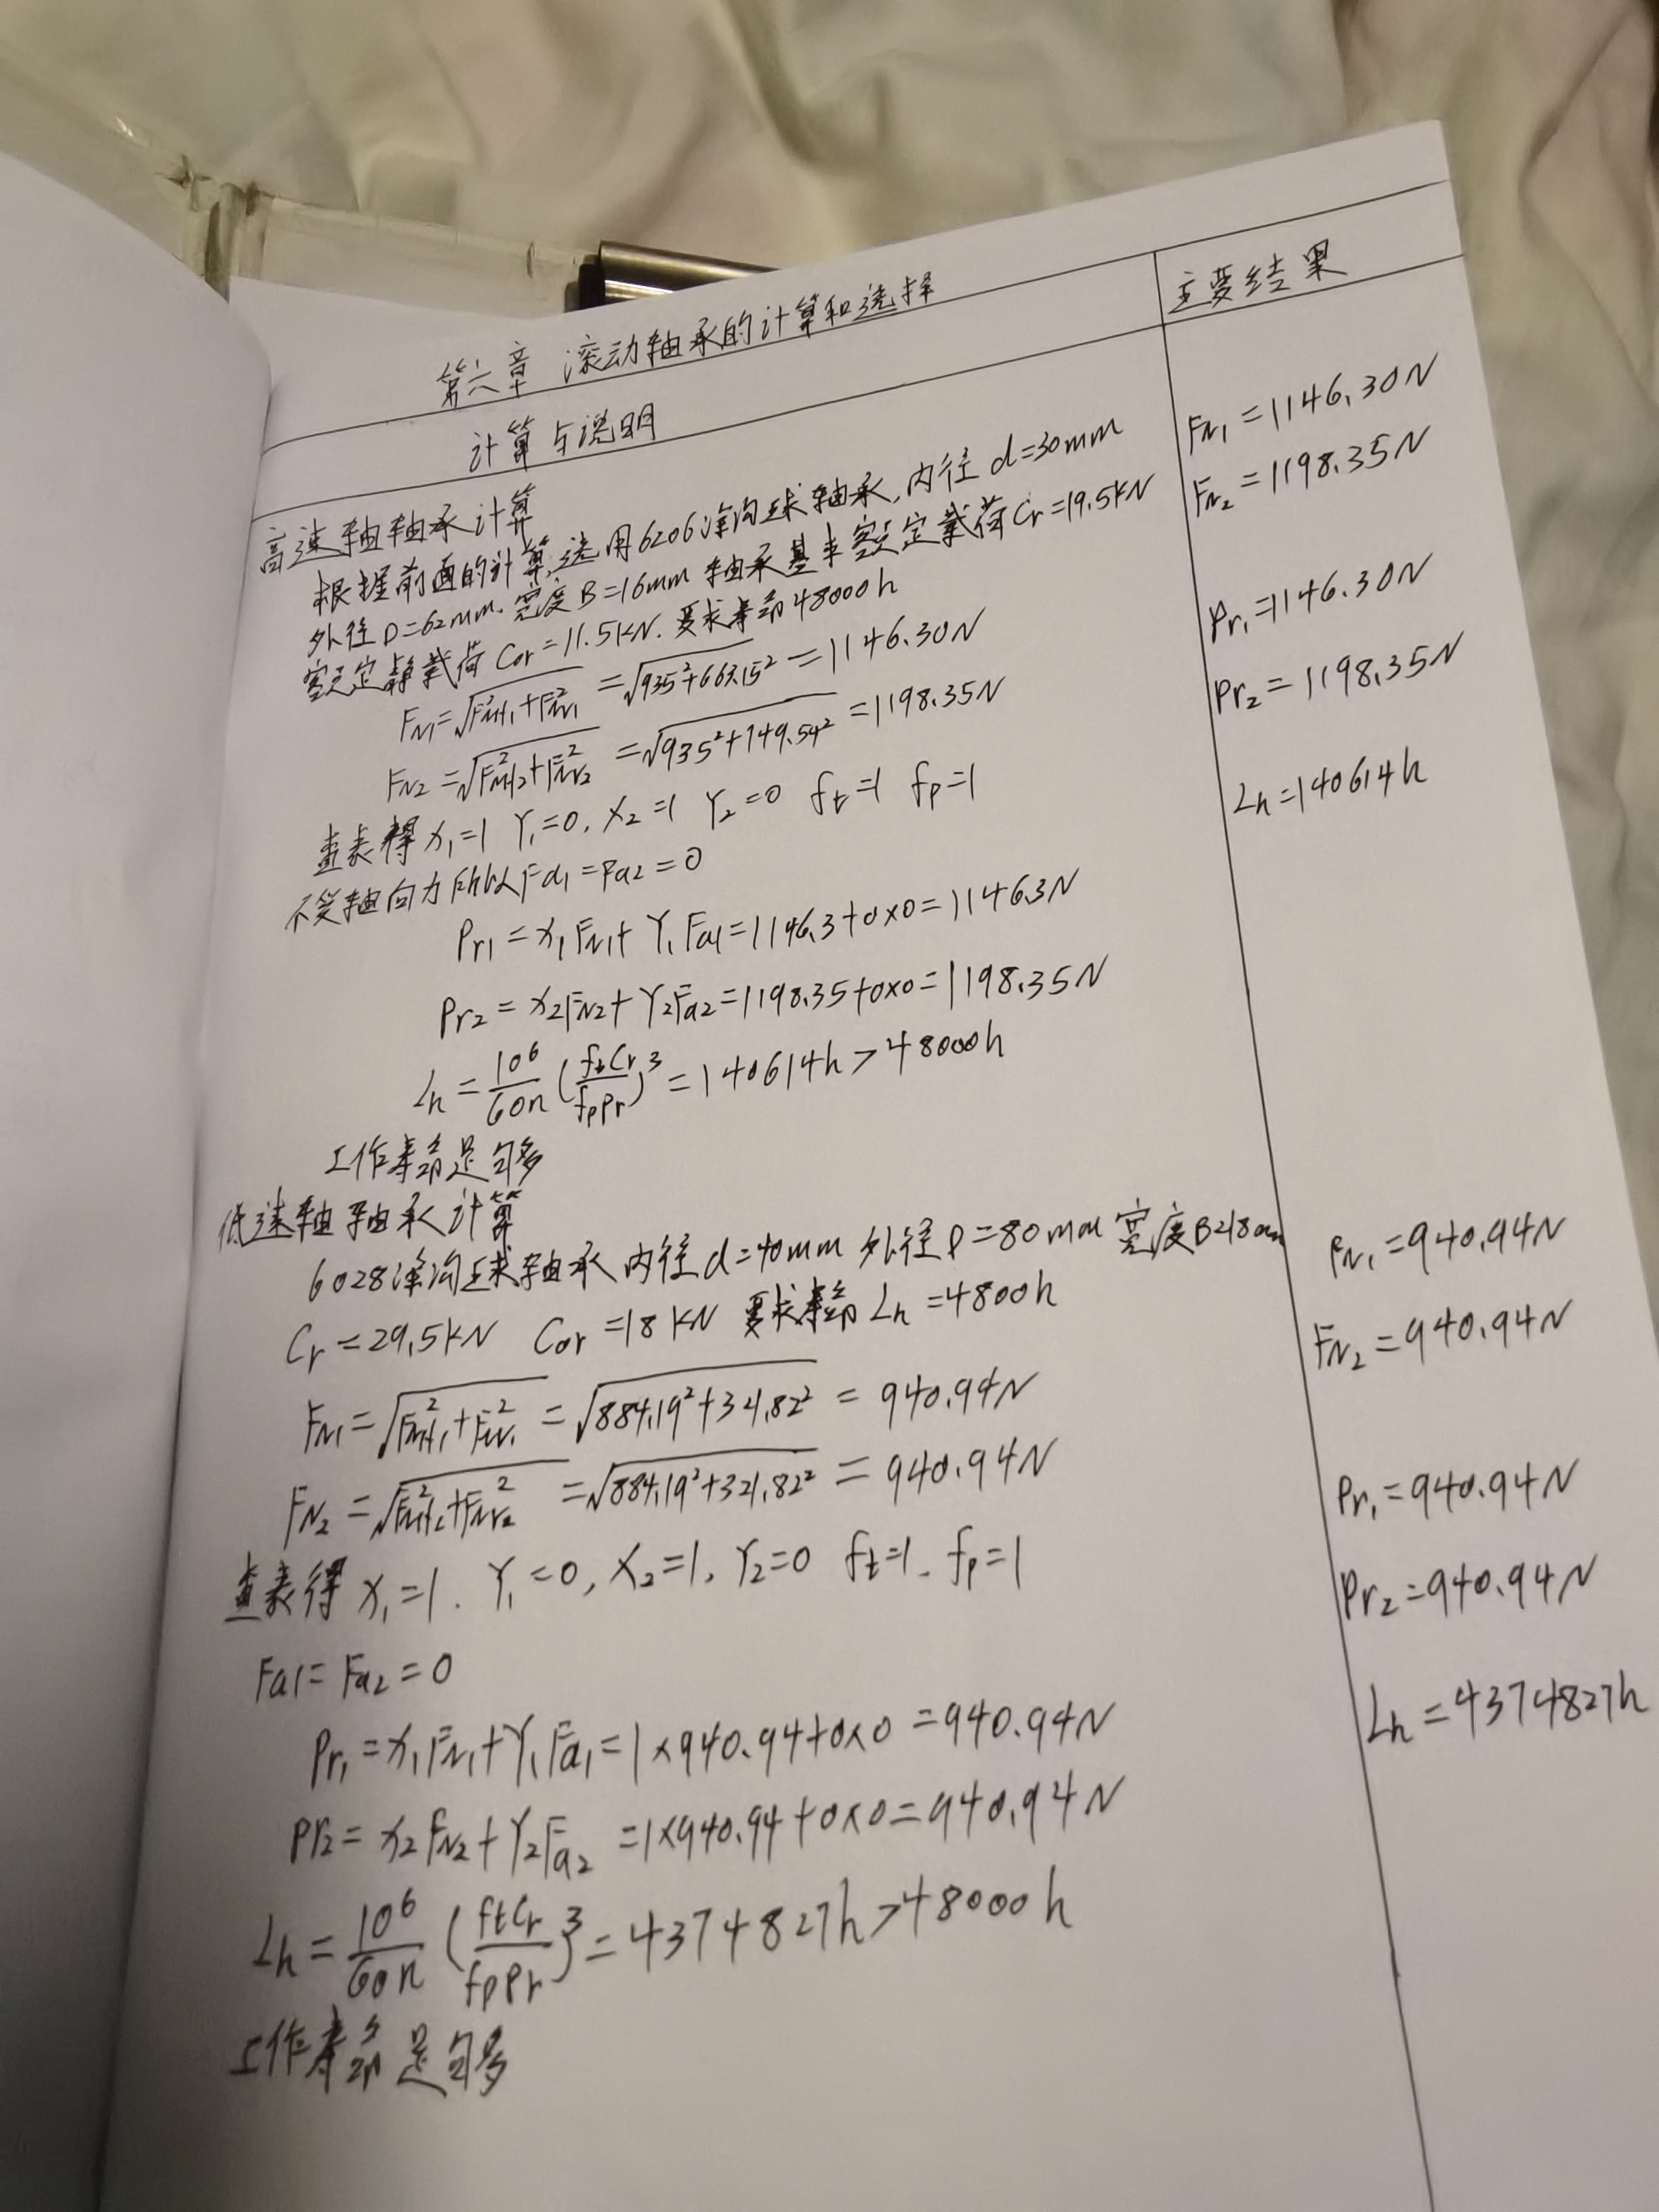 第六章 滚动轴承的计算和选择
计算与说明
主要结果
高速轴轴承计算
根据前面的计算,选用6206深沟球轴承,内径 d=30mm
外径D=62mm.宽度B=16mm 轴承基本额定载荷Cr=19.5kN
额定静载荷 Cor=11.5kN.要求寿命48000h
FN1=√(F²NH1+F²NV1) =√(935²+663.15²) =1146.30N
FN2=√(F²NH2+F²NV2) =√(935²+749.54²) =1198.35N
查表得 X1=1 Y1=0, X2=1 Y2=0 ft=1 fp=1
不受轴向力所以Fa1=Fa2=0
Pr1=X1FN1+Y1Fa1=1146.3+0×0=1146.3N
Pr2=X2FN2+Y2Fa2=1198.35+0×0=1198.35N
Lh=10⁶/60n (ftCr/fpPr)³=140614h>48000h
工作寿命足够
FN1=1146.30N
FN2=1198.35N
Pr1=1146.30N
Pr2=1198.35N
Lh=140614h
低速轴轴承计算
6028深沟球轴承内径d=40mm 外径D=80mm 宽度B=18mm
Cr=29.5kN Cor=18kN 要求寿命Lh=4800h
FN1=√(F²NH1+F²NV1) =√(884.19²+321.82²) =940.94N
FN2=√(F²NH2+F²NV2) =√(884.19²+321.82²) =940.94N
查表得 X1=1. Y1=0, X2=1, Y2=0 ft=1. fp=1
Fa1=Fa2=0
Pr1=X1FN1+Y1Fa1=1×940.94+0×0=940.94N
Pr2=X2FN2+Y2Fa2=1×940.94+0×0=940.94N
Lh=10⁶/60n (ftCr/fpPr)³=4374827h>48000h
工作寿命足够
FN1=940.94N
FN2=940.94N
Pr1=940.94N
Pr2=940.94N
Lh=4374827h